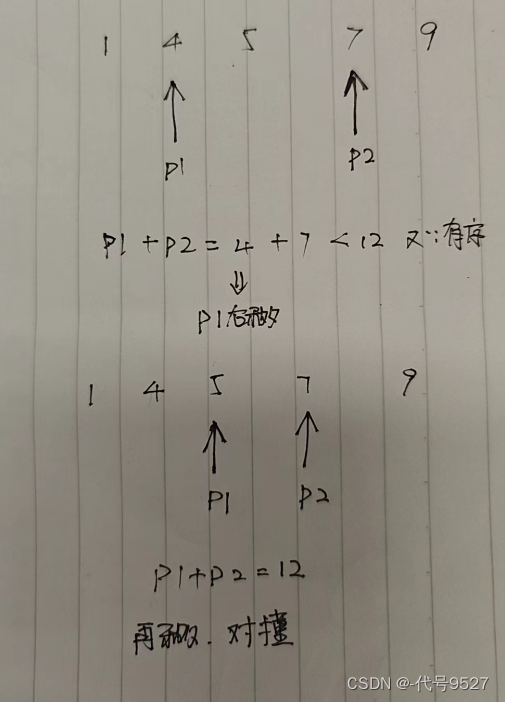 1 4 5 7 9
P1 P2
P1+P2=4+7<12 又∵有序
⇓
P1右移
1 4 5 7 9
P1 P2
P1+P2=12
再移,对撞
CSDN @-代号9527